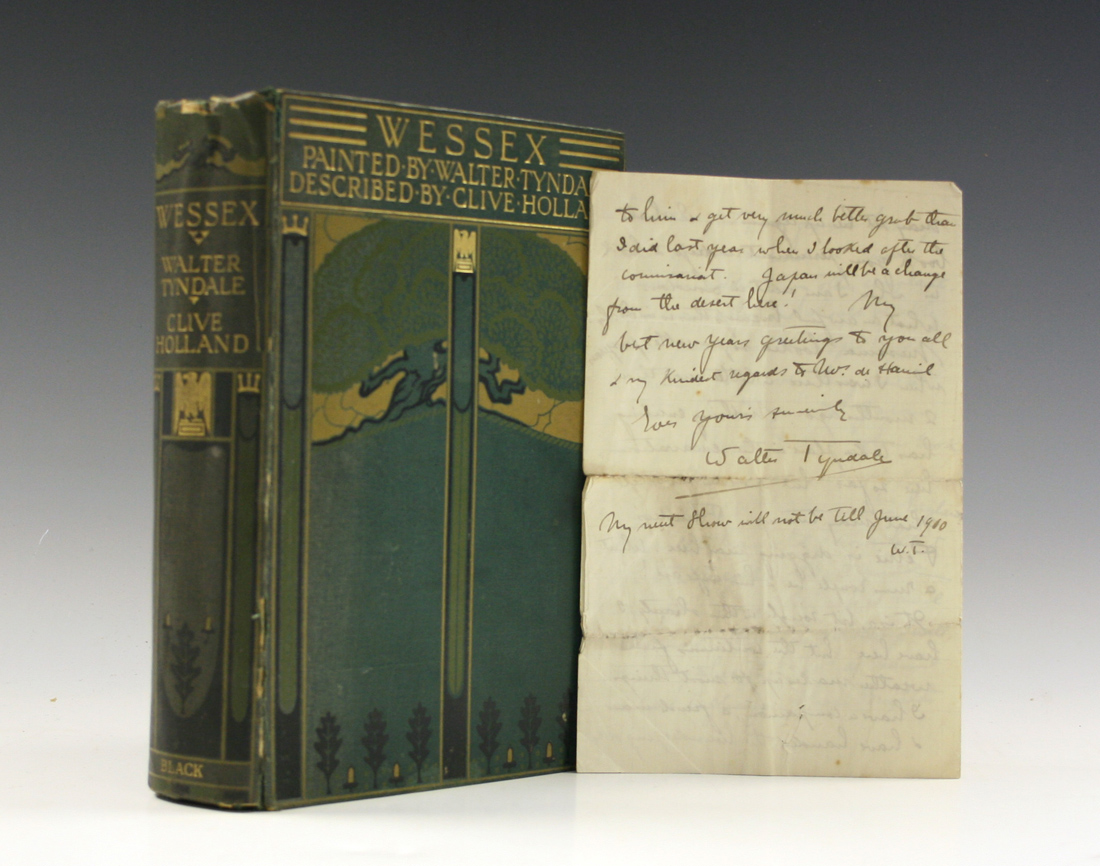 WESSEX
WALTER
TYNDALE
CLIVE
HOLLAND
BLACK
WESSEX
PAINTED·BY·WALTER·TYNDA
DESCRIBED·BY·CLIVE·HOLLA
to him & get very much better grub than
I did last year when I looked after the
commisariat. Japan will be a change
from the desert here! My
best new years greetings to you all
& my kindest regards to Mrs. de
Ever yours sincerely
Walter Tyndale
My next Show will not be till June 1910
W.T.